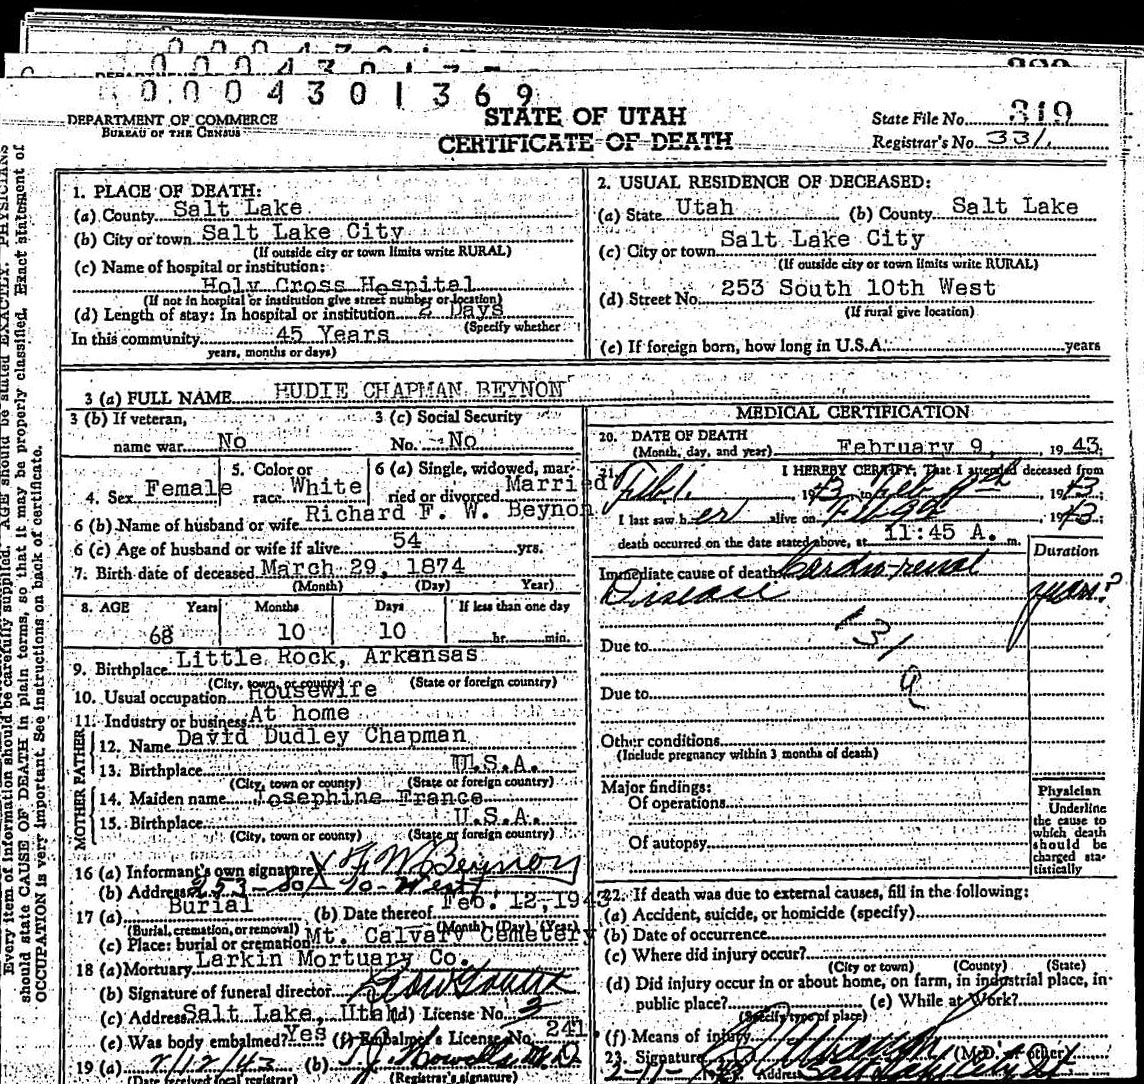 0004301369
DEPARTMENT OF COMMERCE
BUREAU OF THE CENSUS
STATE OF UTAH
CERTIFICATE OF DEATH
State File No. 319
Registrar's No. 331
Every item of information should be carefully supplied. AGE should be stated EXACTLY. PHYSICIANS
should state CAUSE OF DEATH in plain terms, so that it may be properly classified. Exact statement of
OCCUPATION is very important. See instructions on back of certificate.
1. PLACE OF DEATH:
(a) County Salt Lake
(b) City or town Salt Lake City
(If outside city or town limits write RURAL)
(c) Name of hospital or institution:
Holy Cross Hospital
(If not in hospital or institution give street number or location)
(d) Length of stay: In hospital or institution 2 Days
(Specify whether
In this community 45 Years
years, months or days)
2. USUAL RESIDENCE OF DECEASED:
(a) State Utah (b) County Salt Lake
(c) City or town Salt Lake City
(If outside city or town limits write RURAL)
(d) Street No. 253 South 10th West
(If rural give location)
(e) If foreign born, how long in U.S.A. years
3 (a) FULL NAME HUDIE CHAPMAN BEYNON
3 (b) If veteran, 3 (c) Social Security
name war No No. No
4. Sex Female 5. Color or race White 6 (a) Single, widowed, married or divorced Married
6 (b) Name of husband or wife Richard F. W. Beynon
6 (c) Age of husband or wife if alive 54 yrs.
7. Birth date of deceased March 29, 1874
(Month) (Day) Year)
8. AGE Years Months Days If less than one day
68 10 10 hr. min.
9. Birthplace Little Rock, Arkansas
(City, town, or county) (State or foreign country)
10. Usual occupation Housewife
11. Industry or business At home
FATHER
12. Name David Dudley Chapman
13. Birthplace U.S.A.
(City, town or county) (State or foreign country)
MOTHER
14. Maiden name Josephine France
15. Birthplace U.S.A.
(City, town or county) (State or foreign country)
16 (a) Informant's own signature X F W Beynon
(b) Address 253-So 10-West
17 (a) Burial (b) Date thereof Feb. 12, 1943
(Burial, cremation, or removal) (Month) (Day) (Year)
(c) Place: burial or cremation Mt. Calvary Cemetery
18 (a) Mortuary Larkin Mortuary Co.
(b) Signature of funeral director
(c) Address Salt Lake, Utah (d) License No. 3
(e) Was body embalmed? Yes (f) Embalmer's License No. 241
19 (a) 2/12/43 (b) M.D.
(Date received local registrar) (Registrar's signature)
MEDICAL CERTIFICATION
20. DATE OF DEATH
(Month, day, and year) February 9, 1943
21. I HEREBY CERTIFY: That I attended deceased from
Feb 1, 1943 to Feb 9th 1943
I last saw her alive on 1943;
death occurred on the date stated above, at 11:45 A. m.
Duration
Immediate cause of death Cardio-renal
Disease years?
131
Due to
a
Due to
Other conditions
(Include pregnancy within 3 months of death)
Major findings:
Of operations
Of autopsy
Physician
Underline
the cause to
which death
should be
charged sta-
tistically
22. If death was due to external causes, fill in the following:
(a) Accident, suicide, or homicide (specify)
(b) Date of occurrence
(c) Where did injury occur?
(City or town) (County) (State)
(d) Did injury occur in or about home, on farm, in industrial place, in
public place? (e) While at Work?
(Specify type of place)
(f) Means of injury
23. Signature (M.D. or other)
Address Salt Lake City